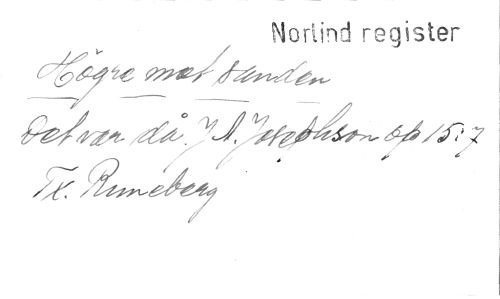 Norlind register
Högre mot sanden
Det var då. J. A. Josephson op 15:7
Tx. Runeberg